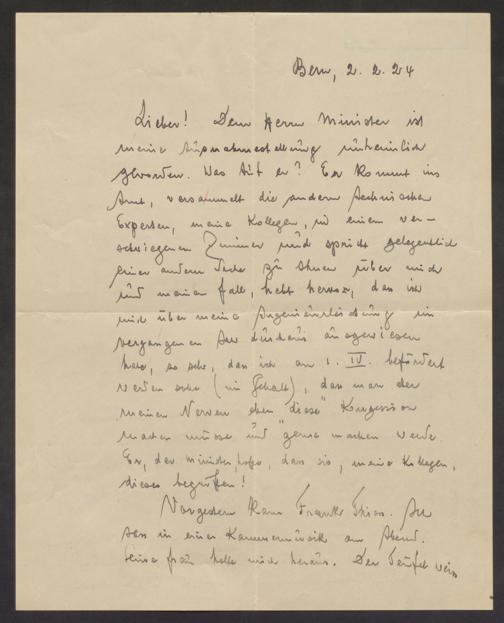 Bern, 2. 2. 24
Lieber! Dem Herrn Minister ist
meine Ausnahmestellung unheimlich
geworden. Was tut er? Er kommt ins
Amt, versammelt die andern technischen
Experten, meine Kollegen, in einem ver-
schwiegenen Zimmer und spricht gelegentlich
einer andern Sache zu Ihnen über mich
und meinen Fall, hebt hervor, dass ich
mich über meine im
vergangenen Jahr durchaus ausgewiesen
habe, so sehr, dass ich am 1. IV. befördert
werden solle (im Gehalt), dass man aber
meinen Nerven eben "diese" Konzession
machen müsse und "gerne machen werde.
Er, der Minister, hoffe, dass sie, meine Kollegen,
dieses begriffen!
Vorgestern kam Frank Thiess. Ich
sass in einer Kammermusik am Abend.
Seine Frau holte mich heraus. Der Teufel weiss